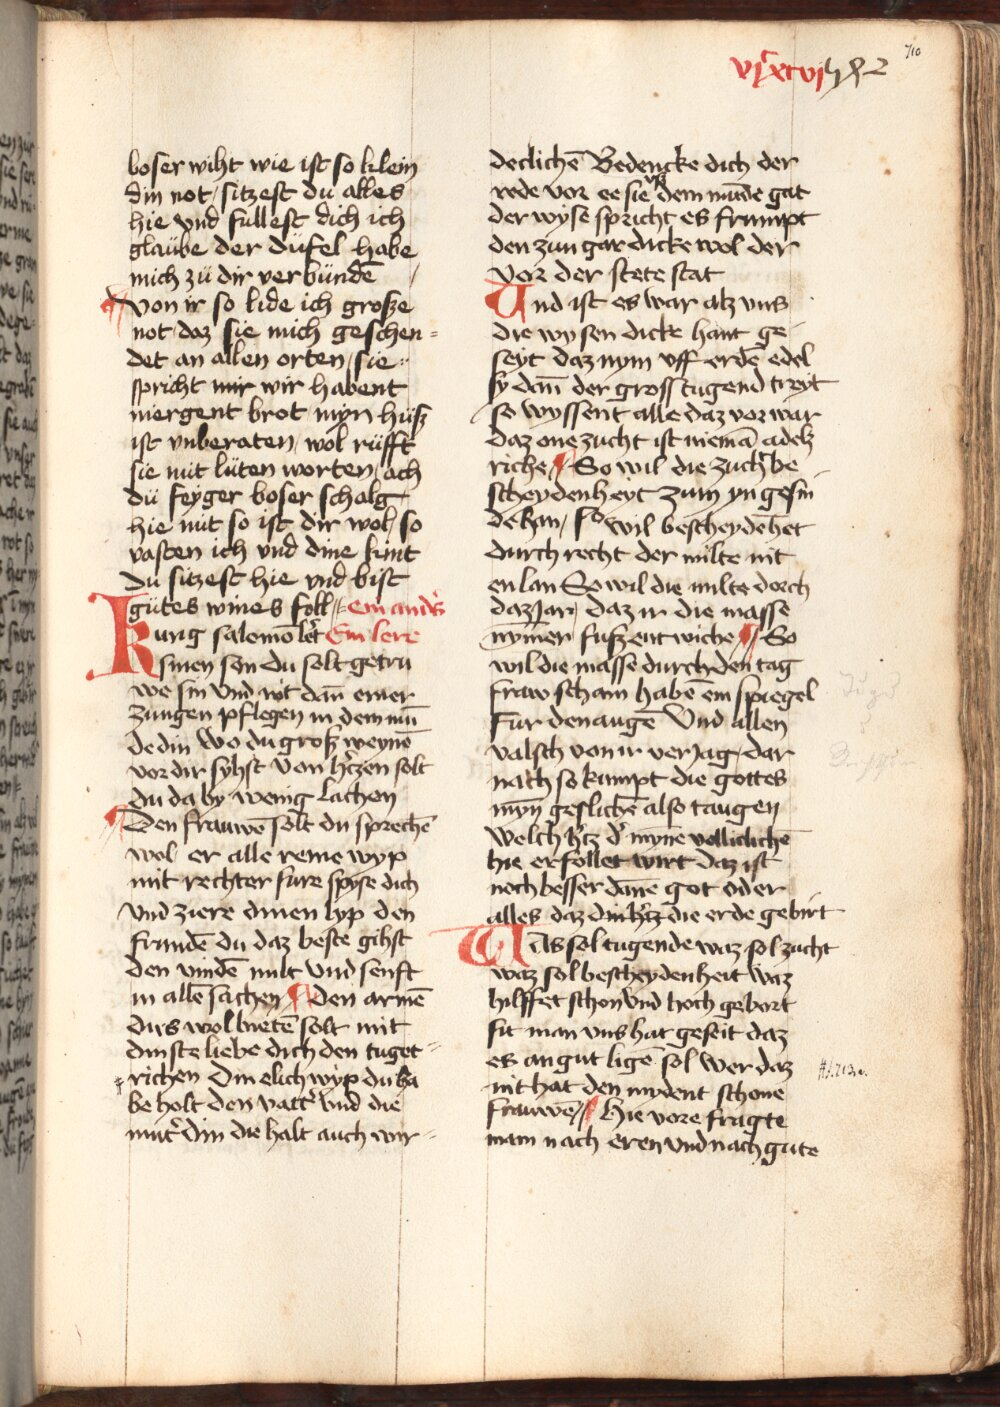 710
vjͨ xcvj
boser wiht wie ist so klein
din not / sitzest du alles
hie vnd fullest dich ich
glaübe der düfel habe
mich zü dir verbündē
von ir so lide ich große
not daz sie mich geschen=
det an allen orten / sie=
spricht mir wir habent
niergent brot myn hüß
ist vnberaten / wol rüfft
sie mit lüten worten / ach
dü feyger boser schalg
hie mit so ist dir wol / so
vasten ich vnd dine kint
Du sitzest hie vnd bist
gütes wines foll / ein anders
Kung salemo lert Ein lere
sinen son du solt getru
we sin vnd nit dañ einer
zungen pflegen in dem mū
de din Wo du groß weynē
vor dir syhst von hertzen solt
du da by wenig lachen
Den frauwē solt du sprechē
wol er alle reine wyp
mit rechter fure spyse dich
vnd ziere dinen lyp den
frundē du daz beste gihst
den vindē milt vnd senft
in allē sachen den armē
dirs wol bietē solt mit
dinste liebe dich den tuget=
richen Din elich wyp du ha
be holt den vatter vnd die
muter din die halt auch wir=
declichē Bedencke dich der
rede vor ee sie vß dem mūde gat
der wyse spricht es frumpt
den zungar dicke wol der
vor der stete stat
Und ist es war alz vns
die wysen dicke hant ge=
seyt daz nym vff erdē edel
sy dañ der gross tugend treyt
so wyssent alle daz vor war
daz one zucht ist niemā adelz
riche So wil die zucht be
scheydenheyt zum yngesin
de han / so wil bescheydēhet
durch recht der milte nit
enlan So wil die milte doch
daz Jar / daz ir die masse
nym̄er fusz entwiche So
wil die masse durch den tag
fraw scham habē ein spiegel
Fur den augē Vnd allen
valsch von ir verJag dar
nach so kumpt die gottes
myn geslichē also taugen
Welch hertz der mynē vollichlichē
hie erfollet wirt daz ist
noch besser dānē got oder
alles daz din hertz die erde gebirt
Was sol tugende waz sol zucht
waz sol bescheydenheit waz
hilffet schon vnd hoch geburt
sit man vns hat geseit daz
es an gut lige sol wer daz
nit hat den mydent schone
frauwē Hie vore fragte
mam nach eren vnd nach gute